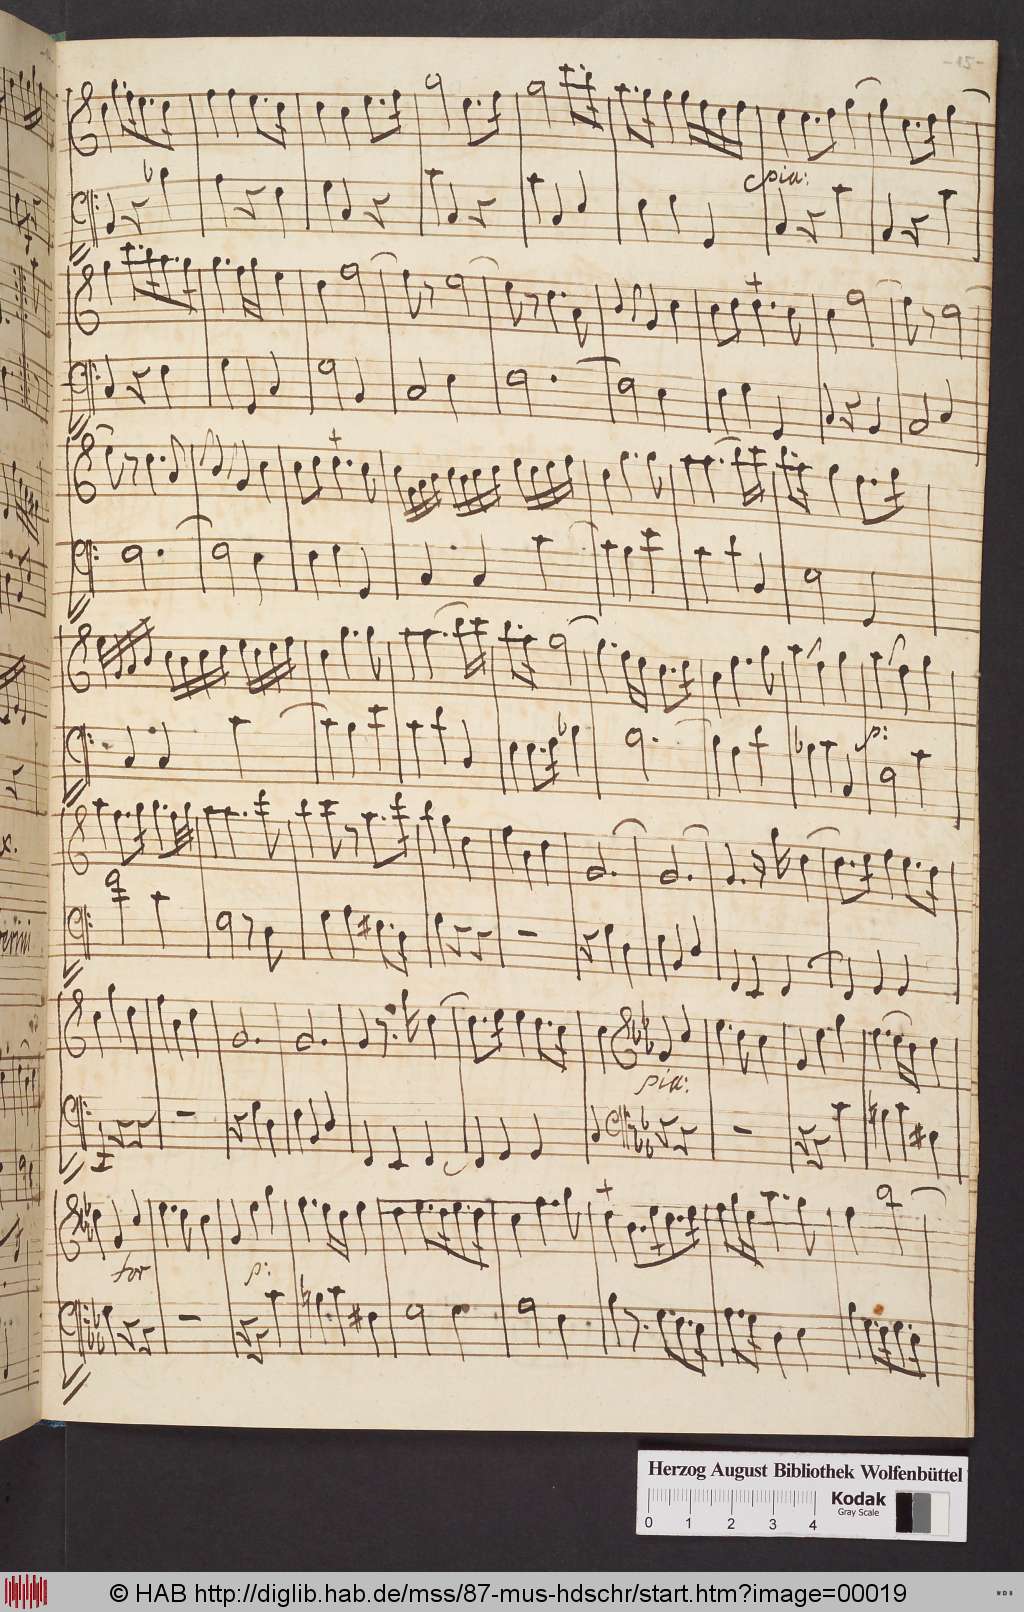 -12-
pia:
p:
pia:
for
p:
Herzog August Bibliothek Wolfenbüttel
Kodak
Gray Scale
0 1 2 3 4
© HAB http://diglib.hab.de/mss/87-mus-hdschr/start.htm?image=00019